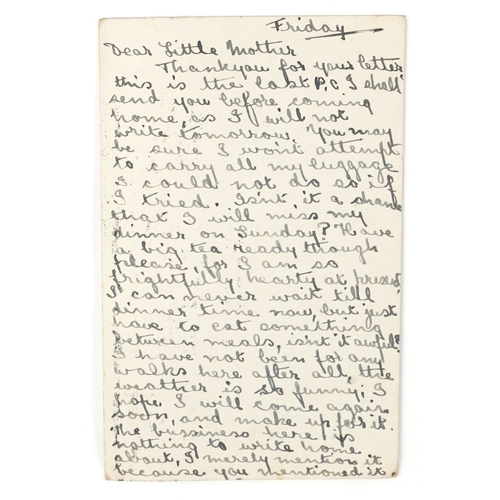 Friday
Dear Little Mother
Thankyou for your letter
this is the last P.C I shall
send you before coming
home, as I will not
write tomorrow. You may
be sure I wont attempt
to carry all my luggage
I could not do so if
I tried. Isnt it a shame
that I will miss my
dinner on Sunday? Have
a big tea ready though
please, for I am so
frightfully hearty at present,
I can never wait till
dinner time now, but just
have to eat something
between meals, isn't it awful?
I have not been for any
walks here after all, the
weather is so funny, I
hope I will come again
soon, and make up for it.
The bussiness here is
nothing to write home
about, I merely mention it
because you mentioned it